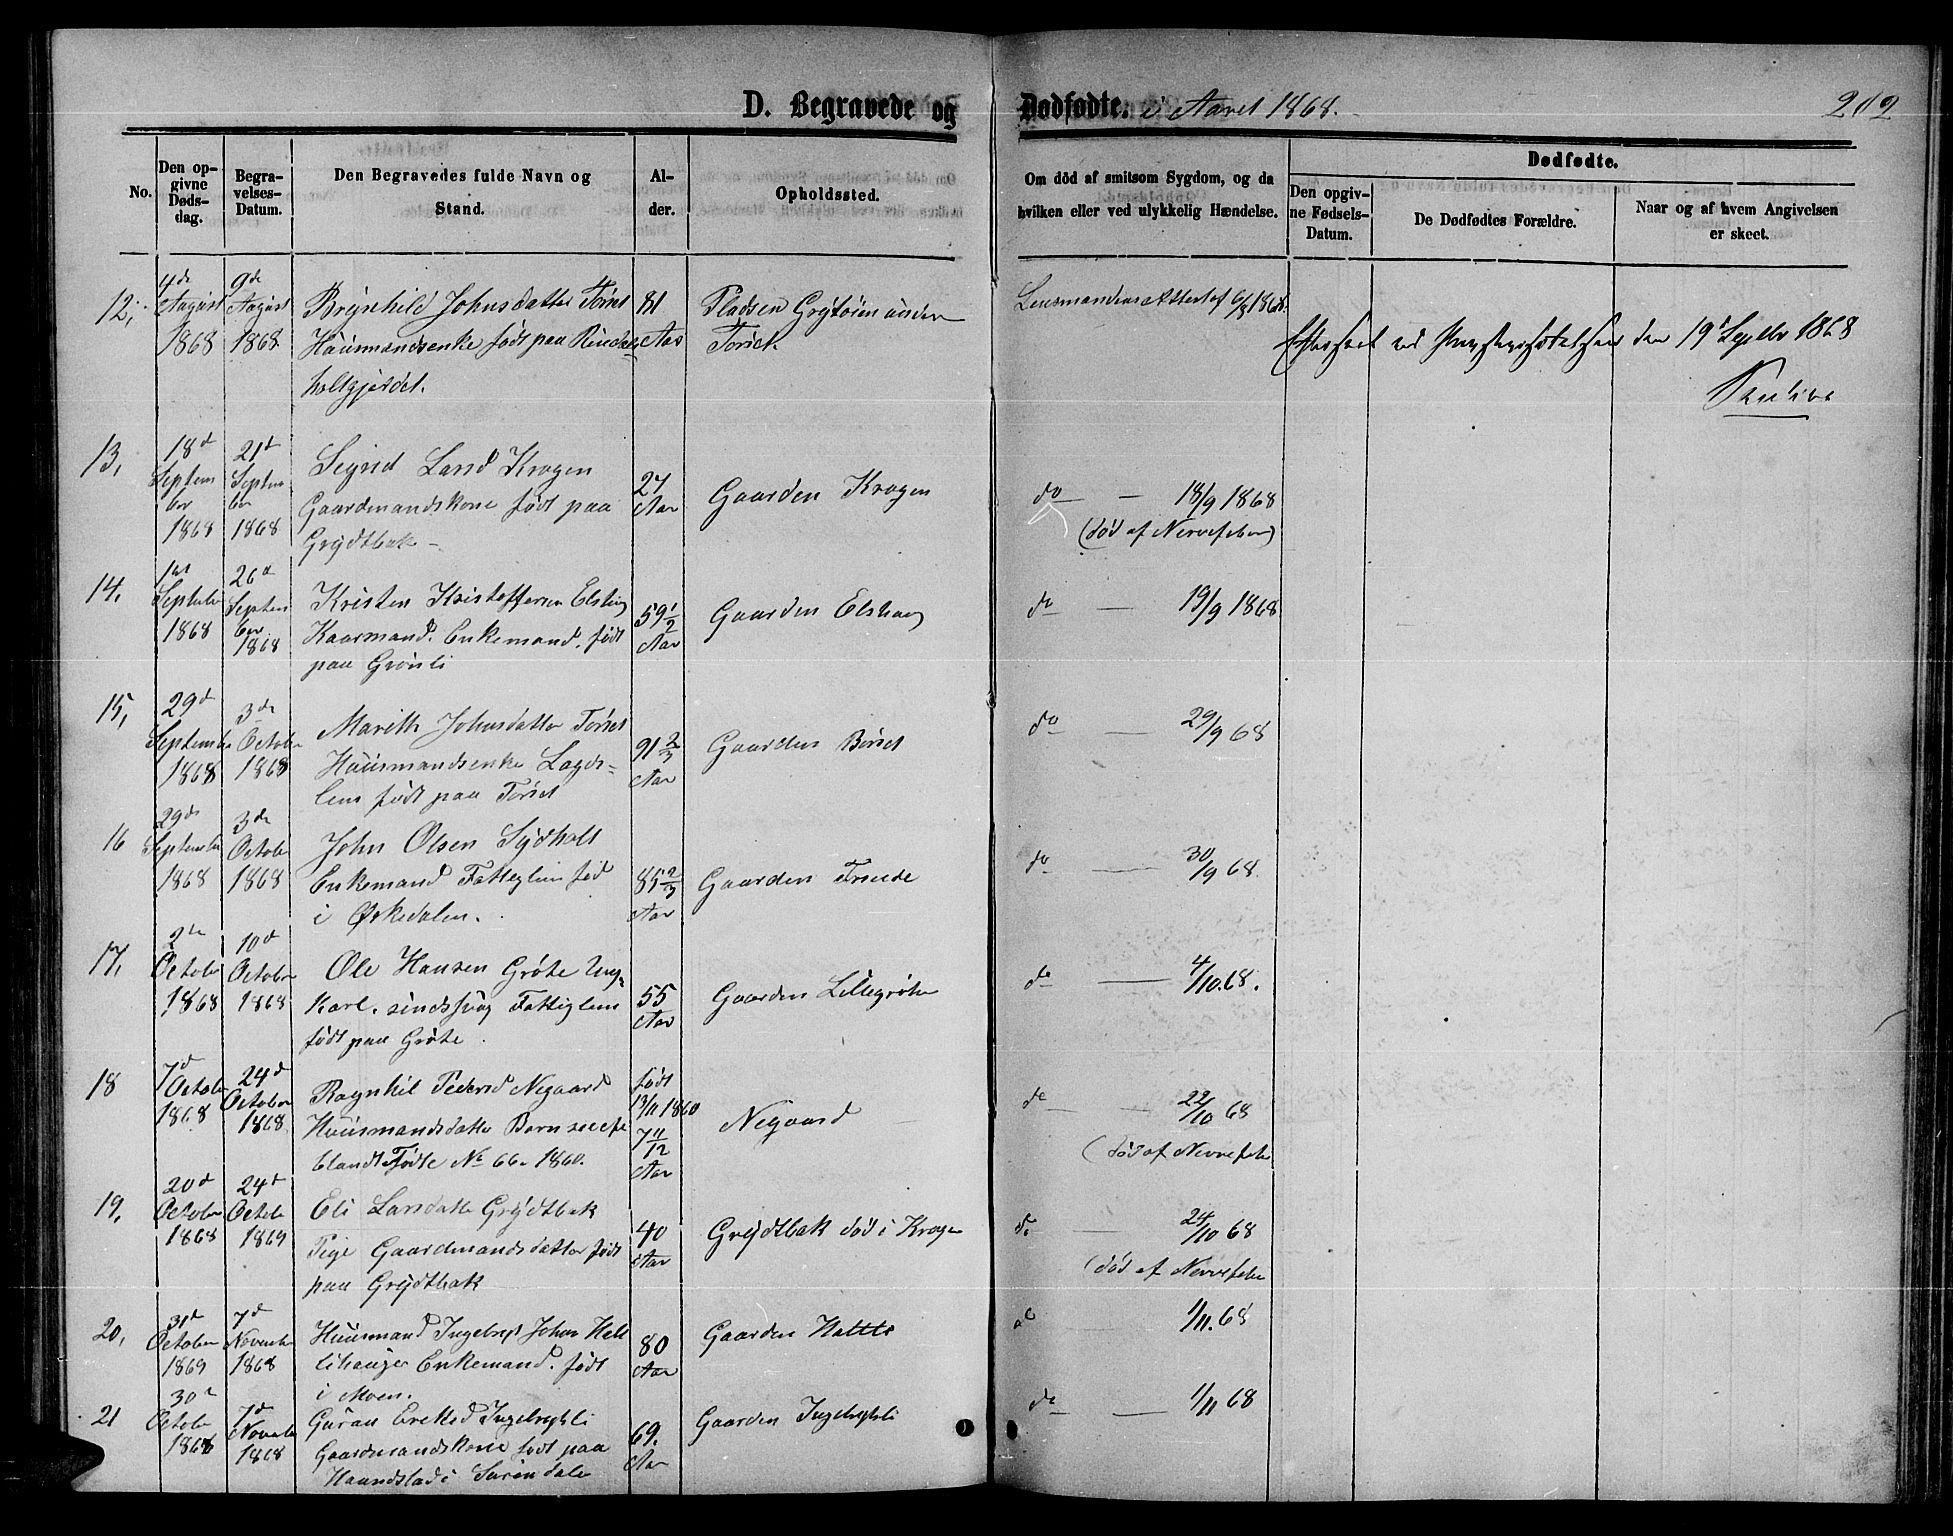 D. Begravede og Dødfødte. i Aaret 1868. 202
No.
Den op-
givne
Døds-
dag.
Begra-
velses-
Datum.
Den Begravedes fulde Navn og
Stand.
Al-
der.
Opholdssted.
Om död af smitsom Sygdom, og da
hvilken eller ved ulykkelig Hændelse.
Dødfødte.
Den opgiv-
ne Fødsels-
Datum.
De Dødfødtes Forældre.
Naar og af hvem Angivelsen
er skeet.
12, 4de August 1868 9de August 1868
Brynhild Johnsdatter Tørset
Huusmandsenke født paa Rindal
holtgjerdet.
81 Aar
Pladsen Grytøien under
Tørset
Lensmandens Attest af 6/8 1868.
ved den 19de Septbr 1868
13, 18d Septem ber 1868 21d Septem ber 1868
Sigrid Larsd Krogen
Gaardmandskone født paa
Grydtbak
27 Aar
Gaarden Krogen
do — 18/9 1868
(død af Nervefeber)
14, Septebr 1868 26d Septem ber 1868
Kristen Kristoffersen Elshaug
Kaarmand. Enkemand. født
paa Grönli
59 1/2 Aar
Gaarden Elshaug
do — 19/9 1868
15, 29d September 1868 3de October 1868
Marith Johnsdatter Tørset
Huusmandsenke Lægds-
lem født paa Tørset
91 2/3 Aar
Gaarden Börset
do — 29/9 68
16 29de September 1868 3de October 1868
John Olsen Sydholt
Enkemand Fattiglem fød
i Ørkedalen.
85 2/3 Aar
Gaarden
do — 30/9 68
17, 2de October 1868 10d October 1868
Ole Hansen Gröte Ung-
Karl. sindssvag Fattiglem
født paa Gröte
55 Aar
Gaarden Lillegröte
do — 4/10.68.
18 7d October 1868 24d October 1868
Ragnhil Pedersd Negaard
Huusmandsdatter Barn se
blandt Fødte No 66. 1860.
født 13/11 1860
7 11/12 Aar
Negaard
do — 22/10 68
(død af Nervefeber
19, 20d October 1868 24d October 1869
Eli Larsdatter Grydtbak
Pige Gaardmandsdatter født
paa Grydtbak
40 Aar
Grydtbak død i Krogen
do — 24/10 68
(død af Nervefeber
20, 31d October 1869 7d November 1868
Huusmand Ingebrigt Johns
Enkemand. født
i Moen.
80 Aar
Gaarden
do — 1/11.68
21 30d October 1868 7d November 1868
Guran Eriksd Ingebrigtsli
Gaardmandskone født paa
Haandstad i Surendalen
69. Aar
Gaarden Ingebrigtsli
do — 1/11 68